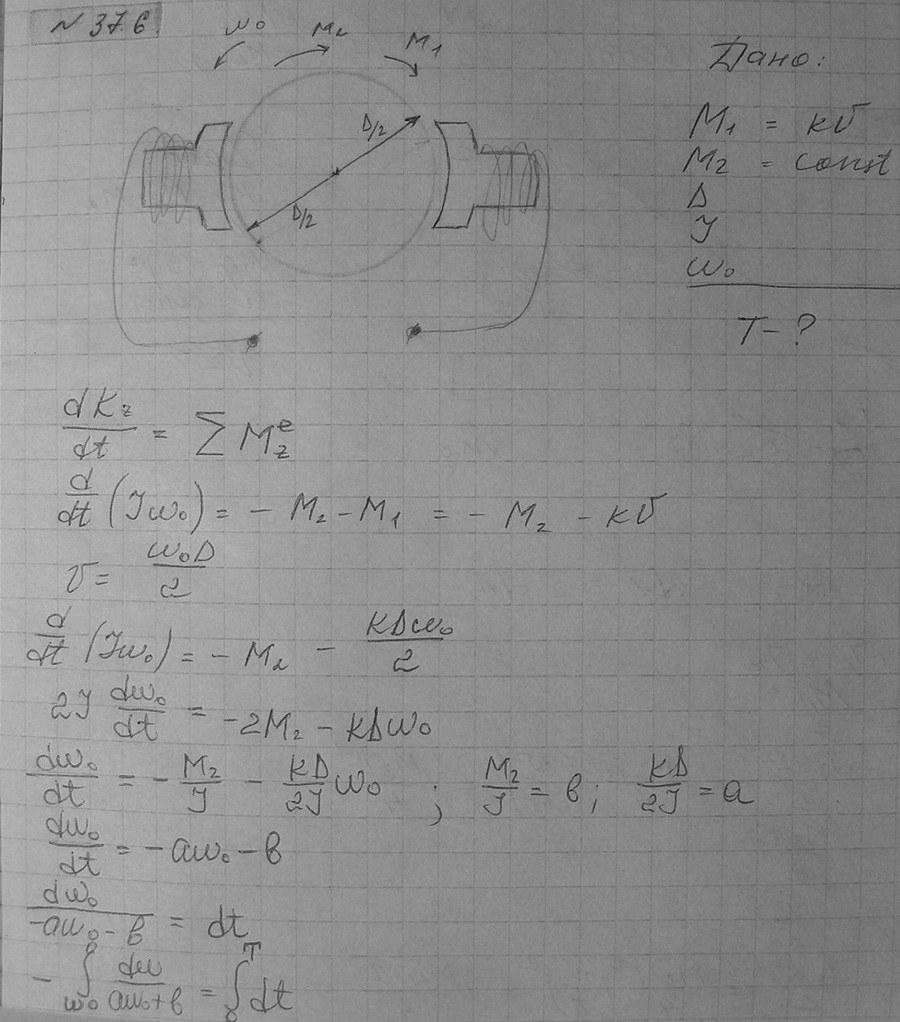 N 37.6
ω₀ M₂ M₁
D/2
D/2
Дано:
M₁ = kv
M₂ = const
D
J
ω₀
T - ?
dK_z/dt = ∑ M_z^e
d/dt (Jω₀) = - M₂ - M₁ = - M₂ - kv
v = ω₀D/2
d/dt (Jω₀) = - M₂ - kDω₀/2
2J dω₀/dt = -2M₂ - kDω₀
dω₀/dt = - M₂/J - kD/2J ω₀ ; M₂/J = b; kD/2J = a
dω₀/dt = -aω₀ - b
dω₀/-aω₀ - b = dt
- ∫_ω₀^0 dω/aω₀+b = ∫_0^T dt